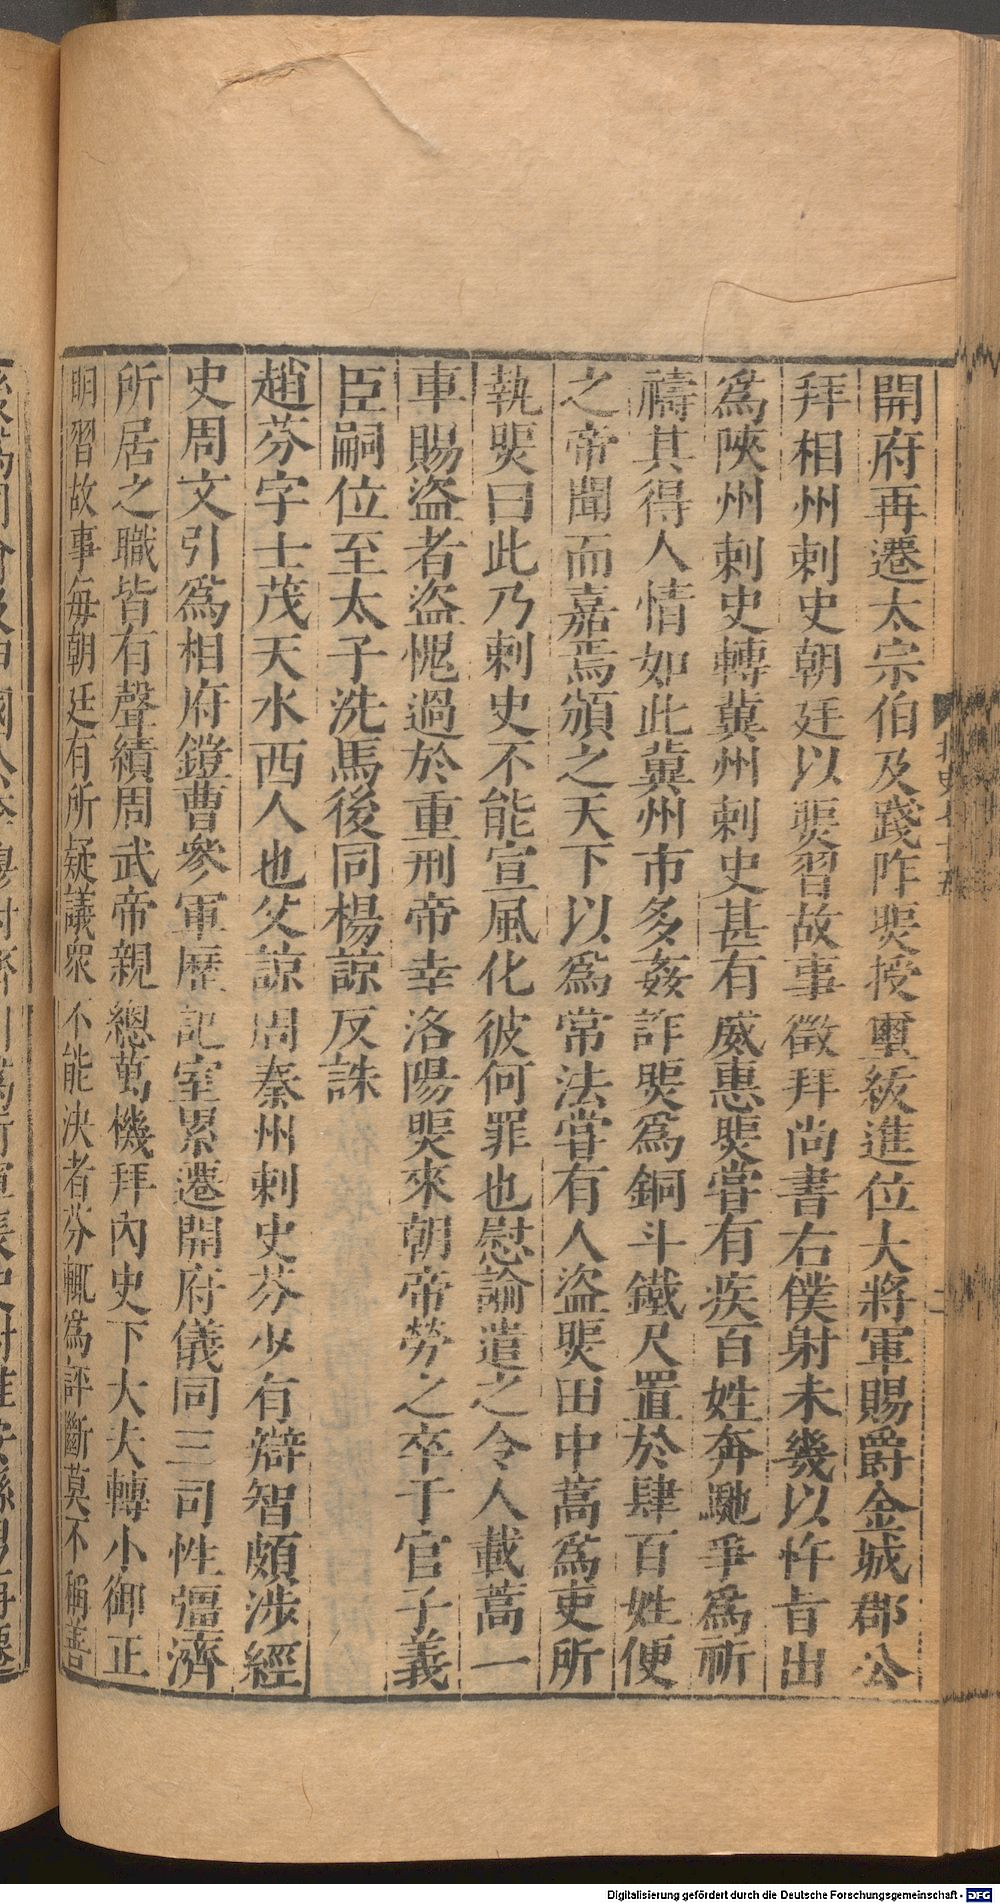 開府再遷太宗伯及踐阼煚授璽紱進位大將軍賜爵金城郡公
拜相州刺史朝廷以煚習故事徵拜尚書右僕射未幾以忤旨出
爲陝州刺史轉冀州刺史甚有威惠煚嘗有疾百姓奔馳爭爲祈
禱其得人情如此冀州市多姦詐煚爲銅斗鐵尺置於肆百姓便
之帝聞而嘉焉頒之天下以爲常法嘗有人盜煚田中蒿爲吏所
執煚曰此乃刺史不能宣風化彼何罪也慰諭遣之令人載蒿一
車賜盜者盜愧過於重刑帝幸洛陽煚來朝帝勞之卒于官子義
臣嗣位至太子洗馬後同楊諒反誅
趙芬字士茂天水西人也父諒周秦州刺史芬少有辯智頗涉經
史周文引爲相府鎧曹參軍歷記室累遷開府儀同三司性彊濟
所居之職皆有聲績周武帝親總萬機拜內史下大夫轉小御正
明習故事每朝廷有所疑議衆不能決者芬輒爲評斷莫不稱善
Digitalisierung gefördert durch die Deutsche Forschungsgemeinschaft - DFG